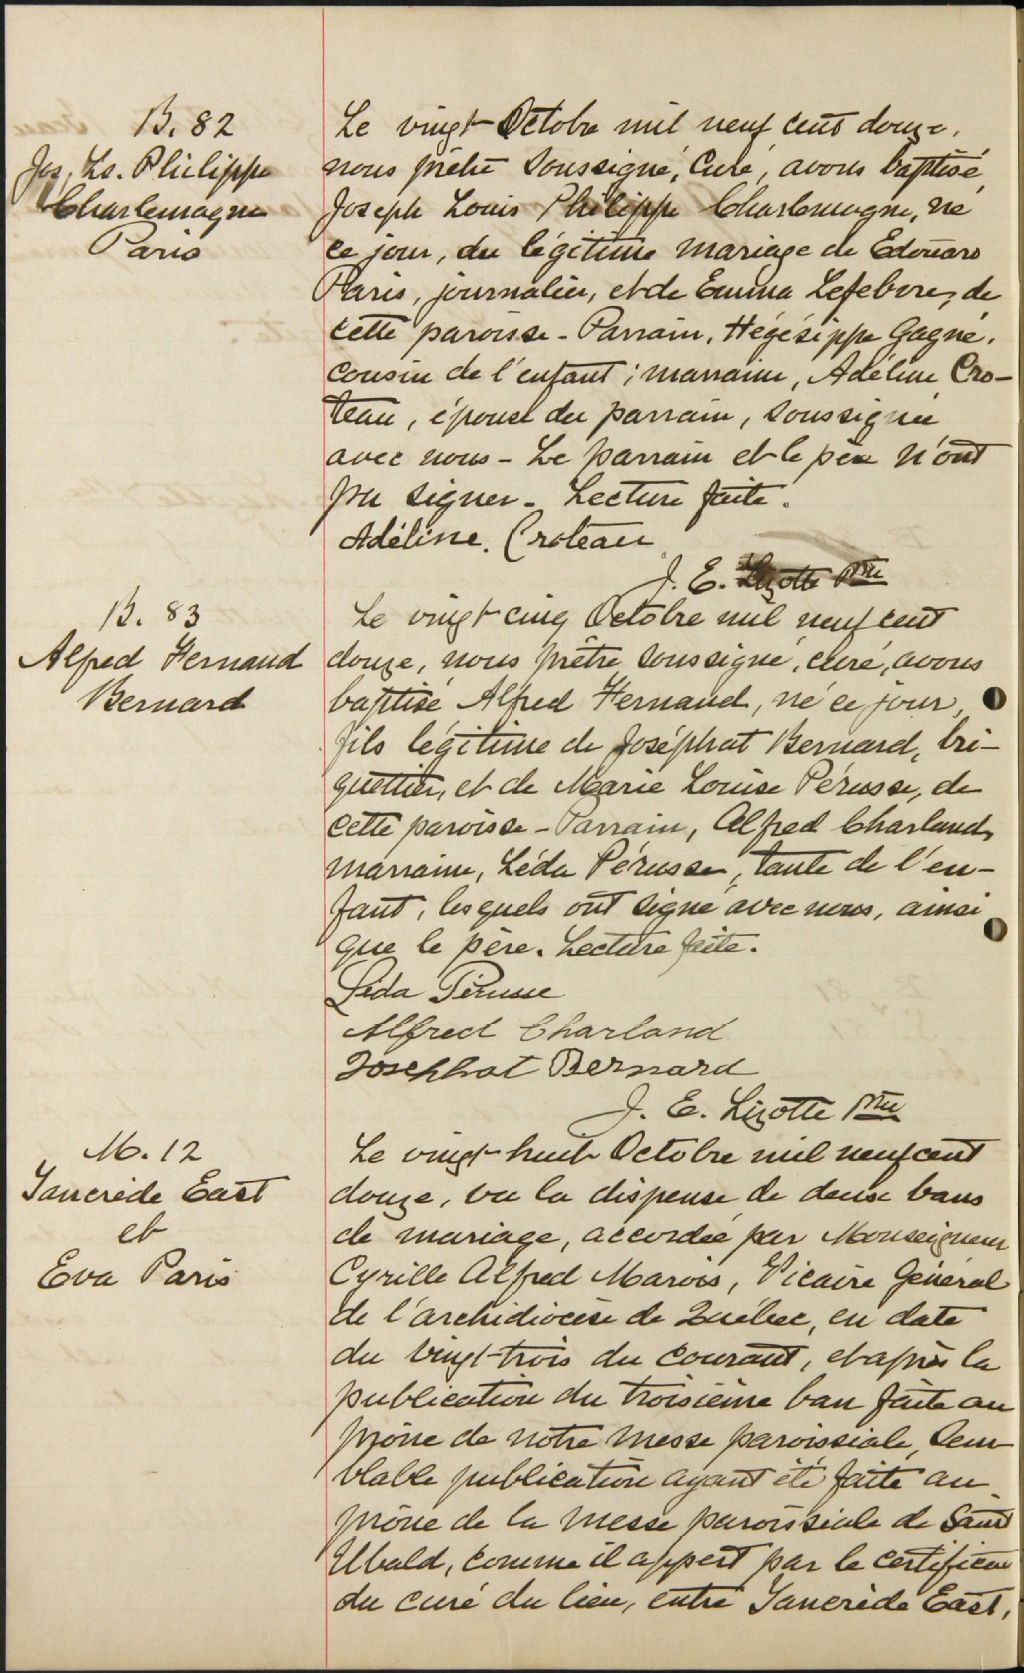 B. 82
Jos, Ls. Philippe
Charlemagne
Paris
Le vingt Octobre mil neuf cent douze,
nous prêtre soussigné, curé, avons baptisé
Joseph Louis Philippe Charlemagne, né
ce jour, du légitime mariage de Edouard
Paris, journalier, et de Emma Lefebvre, de
cette paroisse - Parrain, Hégésippe Gagné,
cousin de l'enfant; marraine, Adéline Cro-
teau, épouse du parrain, soussignée
avec nous - Le parrain et le père n'ont
pu signer - Lecture faite.
Adéline. Croteau
J. E. Lizotte Ptre
B. 83
Alfred Fernand
Bernard
Le vingt cinq Octobre mil neuf cent
douze, nous prêtre soussigné, curé, avons
baptisé Alfred Fernand, né ce jour,
fils légitime de Joséphat Bernard, bri-
quetier, et de Marie Louise Pérusse, de
cette paroisse - Parrain, Alfred Charland,
marraine, Léda Pérusse, tante de l'en-
fant, lesquels ont signé avec nous, ainsi
que le père. Lecture faite.
Léda Pérusse
Alfred Charland
Josephat Bernard
J. E. Lizotte Ptre
M. 12
Tancrède East
et
Eva Paris
Le vingt huit Octobre mil neuf cent
douze, vu la dispense de deux bans
de mariage, accordée par Monseigneur
Cyrille Alfred Marois, Vicaire Général
de l'archidiocèse de Québec, en date
du vingt-trois du courant, et après la
publication du troisième ban faite au
prône de notre messe paroissiale, sem-
blable publication ayant été faite au
prône de la messe paroissiale de Saint
Ubald, comme il appert par le certificat
du curé du lieu, entre Tancrède East,